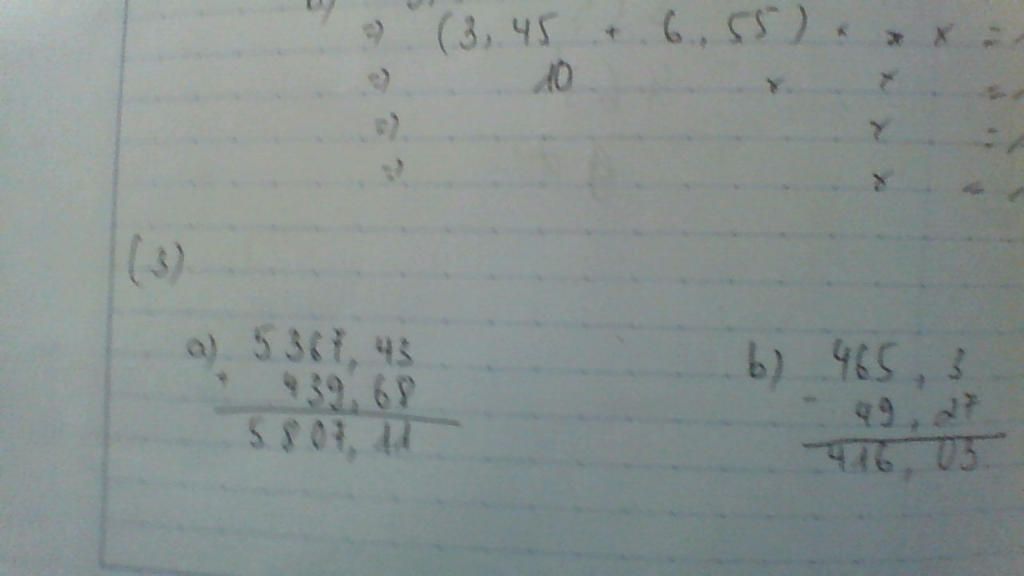 => (3,45 + 6,55) × x =
=> 10 × x =
=> x =
=> x =
(3)
a) 5367,43 b) 465,3
+ 439,68 - 49,27
5807,11 416,03